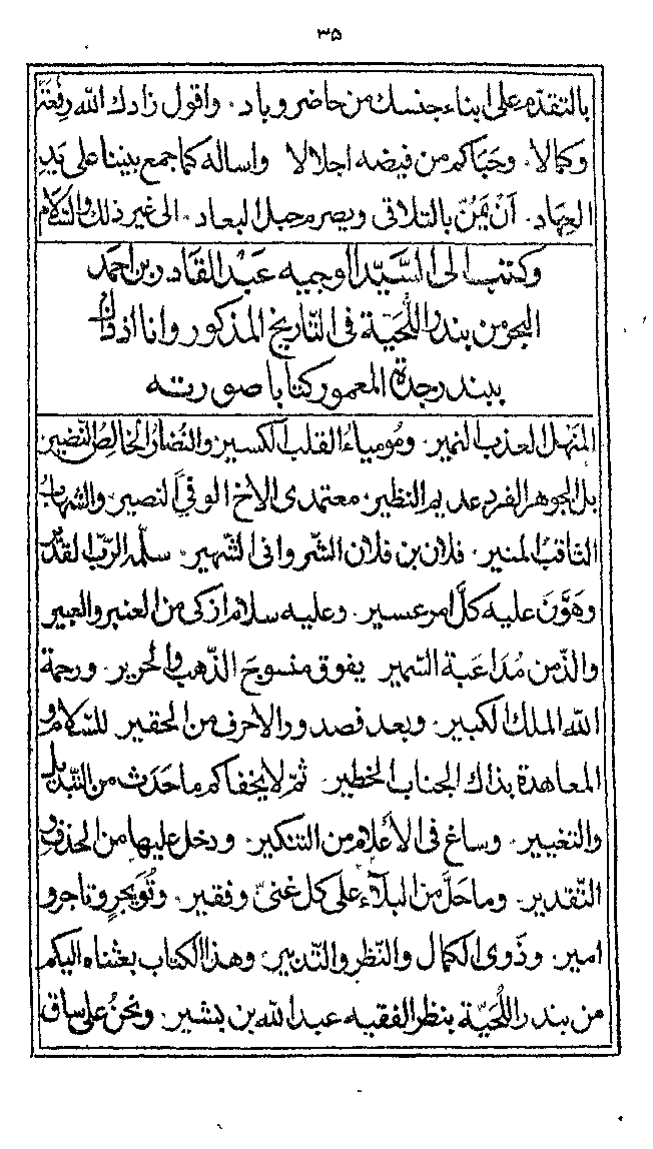 ٣٥
بالتقدم على ابناء جنسك من حاضر وباد٠ واقول زادك الله رفعة
وكمالا٠ وحباكم من فيضه اجلالا واساله كما جمع بيننا على يد
العهاد٠ أن يمنّ بالتلاقى ويصرم حبل البعاد٠ الى غير ذلك والسّلام
وكتب الى السَّيّد الوجيه عبد القادر بن احمد
البحر من بندر اللُّحيّة فى التّاريخ المذكور وانا اذ ذاك
ببندر جدة المعمور كتابا صورته
المنهل العذب النمير٠ ومومياءُ القلب الكسير والنُضارُ الخالِصُ النّضير
بل الجوهر الفرد عديم النظير٠ معتمدى الاخ الوفيّ النصير٠ والشهابُ
الثّاقبُ المنير٠ فلان بن فلان الشّروانى الشّهير٠ سلّمه الرّبّ القدير
وهَوَّنَ عليه كلَّ امر عسير٠ وعليه سلام ازكى من العنبر والعبير
والذّ من مُدَاعبة السّمير يفوق منسوجَ الذّهب والحرير٠ ورحمة
الله الملك الكبير٠ وبعد فصدور الاحرف من الحقير للسّلام و
المعاهدة بذاك الجناب الخطير ثمّ لا يخفاكم ما حَدَث من التّبديل
والتغيير٠ وساغ فى الأعلام من التنكير٠ ودخل عليها من الحذف و
التّقدير٠ وما حلَّ من البلآء على كل غنىّ وفقير٠ وتُوَيجرٍ وتاجر و
امير٠ وذَوى الكمال والنّظر والتّدبير٠ وهذا الكتاب بعثناه اليكم
من بندر اللُّحيّة بنظر الفقيه عبد الله بن بشير٠ ونحنُ على ساق